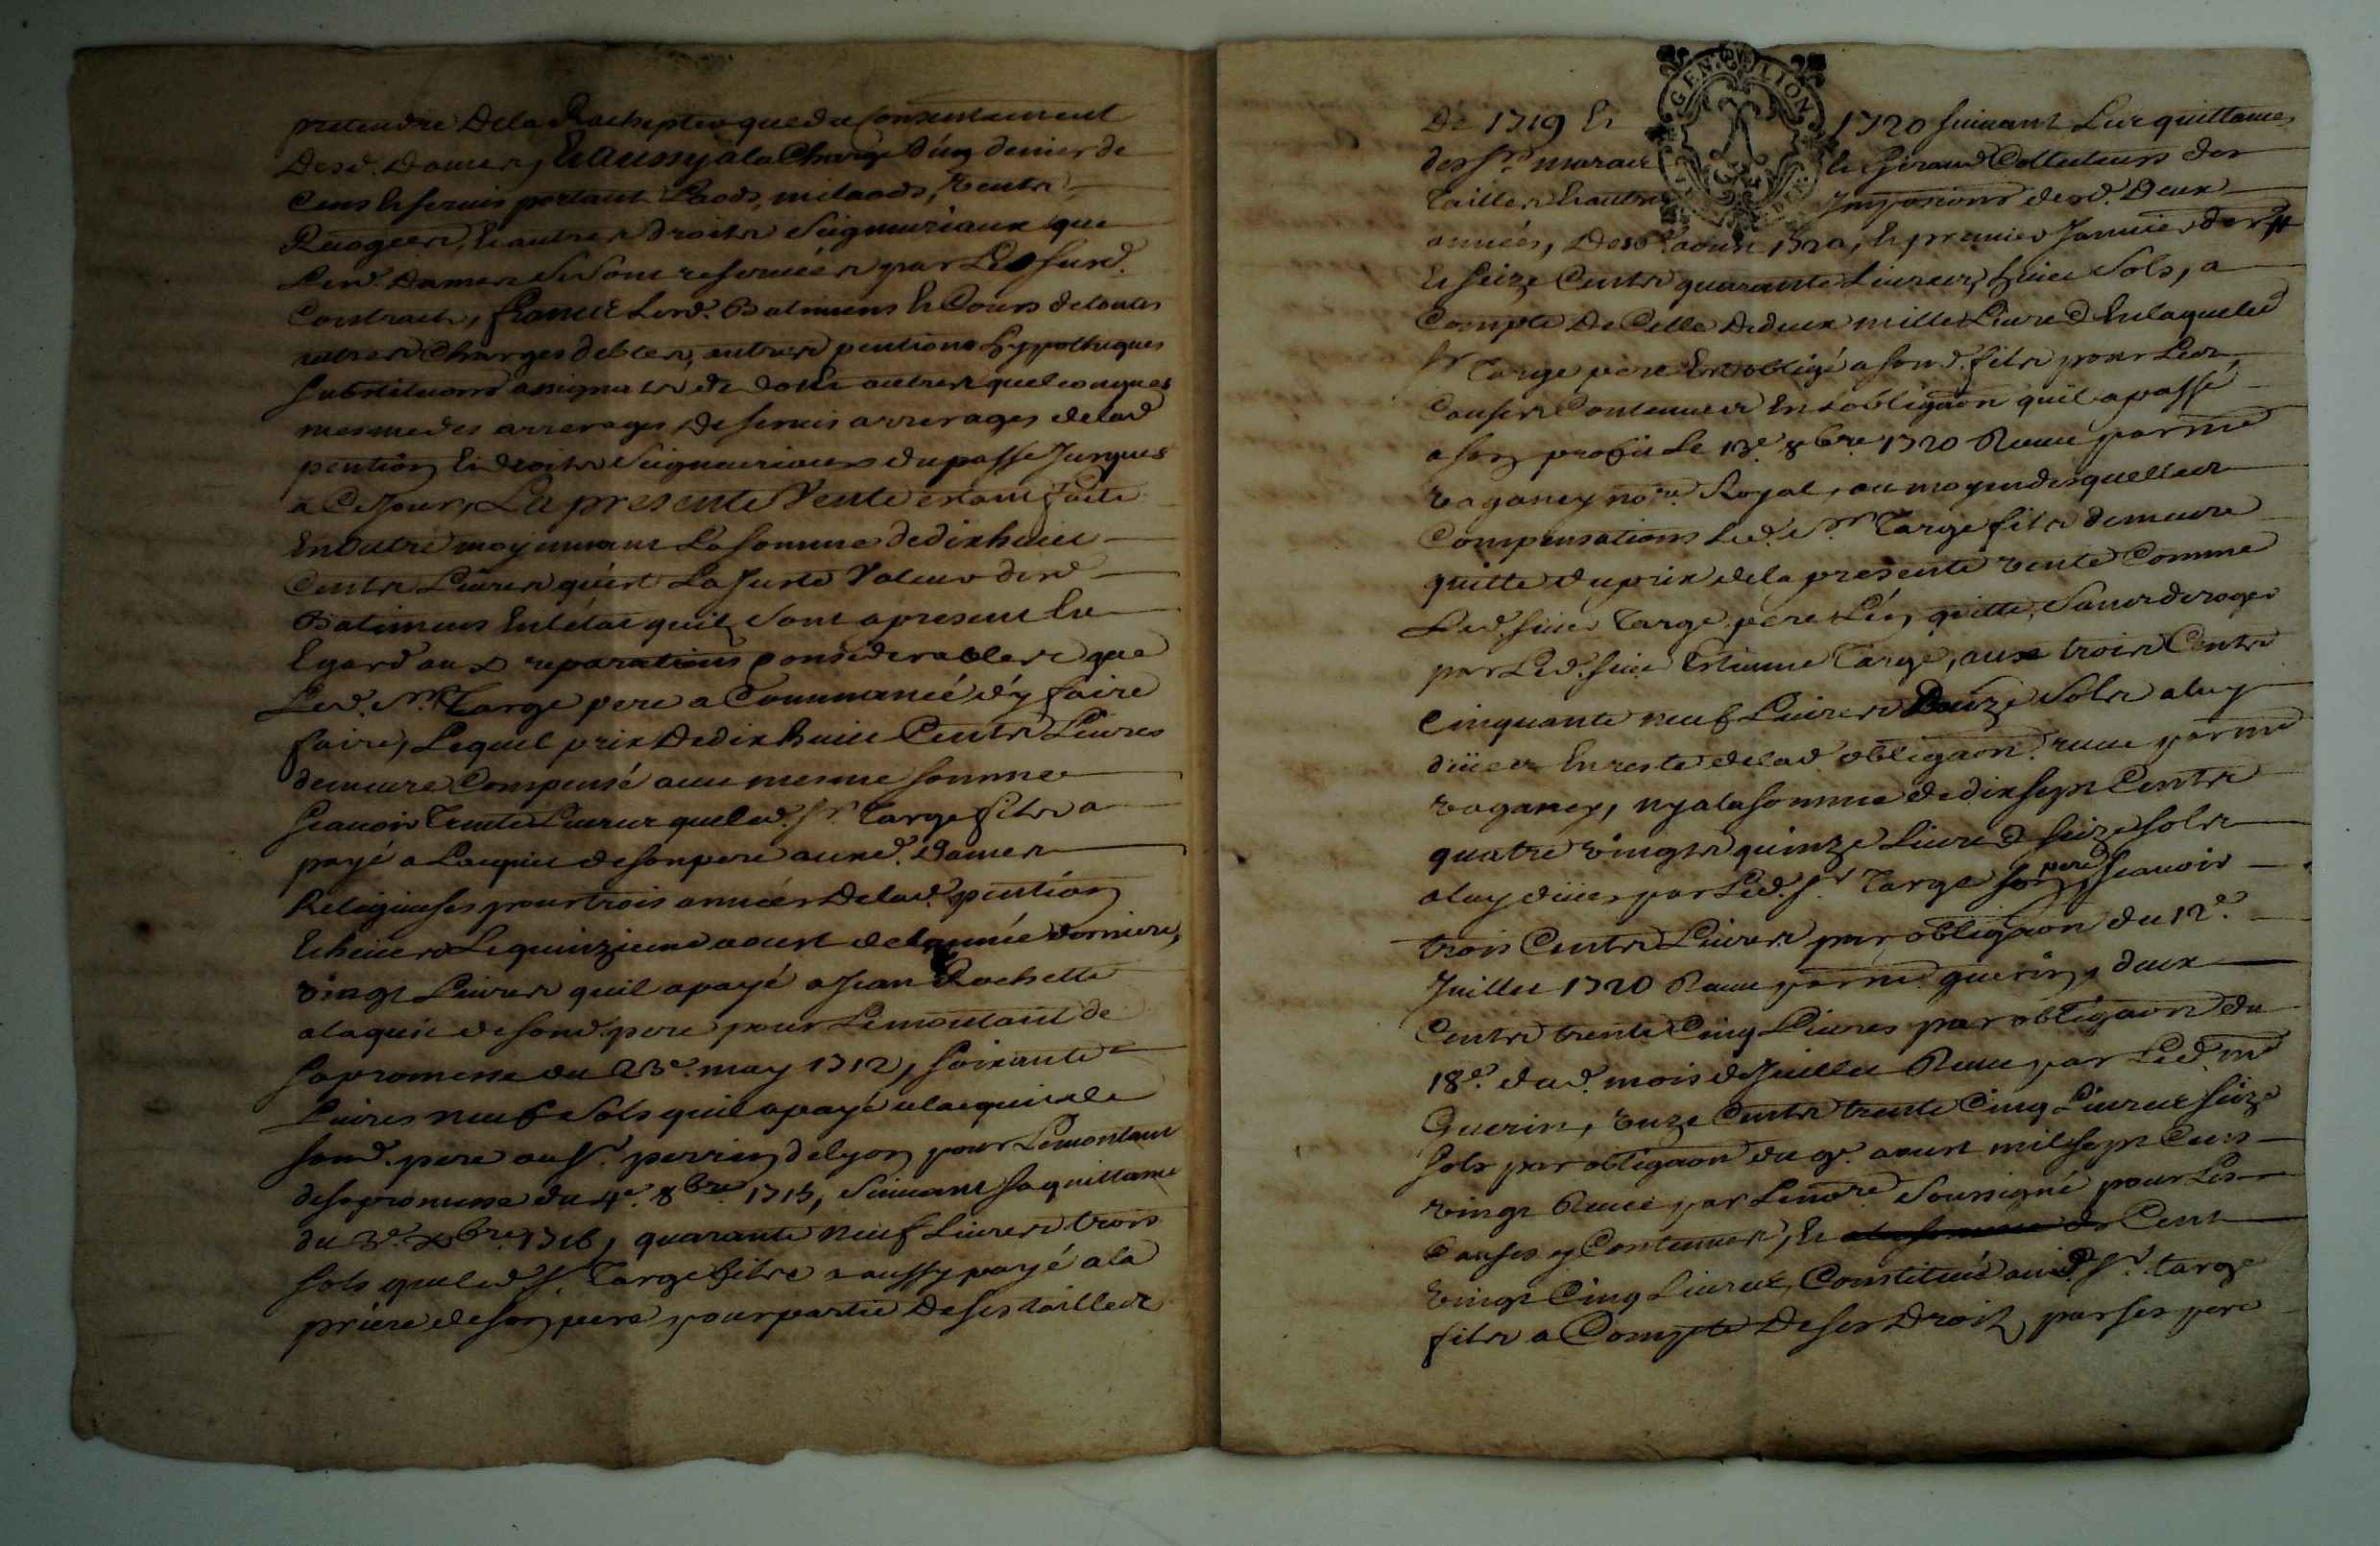 pretendre de la Rachepter que du Consentement
desd. Dames, Et aussy a la Charge d'un denier de
Cens Et servis portant Laods, milaods, Vente,
Et autres droits Seigneuriaux que
Lesd. Dames se sont reservées par Le susd.
Contract, francs Lesd. Batimens Et Cours de toutes
autres Charges debtes, autres pentions hyppotheques
substitutions assignats Et dots autres quelconques
mesme des arrerages de servis arrerages de lad
pention Et droits Seigneuriaux du passé Jusques
a Ce Jour, La presente Vente etant faite
En outre moyennant La somme de dix huict
Cents Livres qu'est La Juste Valeur desd
Batimens En l'état quil sont a present Eu
Egard aux reparations Considerables que
Led. Sr. Targe pere a Commancé d'y faire
faire, Lequel prix de dix huict Cents Livres
demeure Compensé avec mesme somme
scavoir Trente Livres que led. Sr. Targe fils a
payé a Lacquit de son pere auxd. Dames
Religieuses pour trois années de lad. pention
Echeües Le quinzieme aoust de l'année derniere,
vingt Livres quil a payé a Jean Rochette
a laquit de sond. pere pour Le montant de
sa promesse du 23e. may 1712, soixante
Livres neuf sols quil a payé a lacquit de
sond. pere au Sr. perrin de lyon pour Le montant
de sa promesse du 4e. 8bre 1715, suivant sa quittance
du 3e. Xbre. 1716, quarante neuf Livres trois
sols que led Sr. Targe fils a aussy payé a la
priere de son pere pour partie de ses tailles
GEN. LION
De 1719 Et 1720 suivant Les quittances
des Srs Et Giraud Collecteurs des
Tailles Et autres Impositions desd. Deux
années, des aoust 1720, Et premier Janvier der
Et seize Cents quarante Livres, huict sols, a
Compte de Celle de deux mille Livres En laquelle
Sr Targe pere Est obligé a sond. fils pour Les
Causes Contenues En Lobligaon quil a passé
a son profit Le 13e 8bre 1720 Receue par me
Vaganey nore Royal, au moyen desquelles
Compensations Led. Sr. Targe fils demeure
quitte du prix de la presente vente Comme
Led. sieur Targe pere L'en quitte, sans deroger
par Led. sieur Estienne Targe, aux trois Cents
Cinquante neuf Livres Douze sols a luy
düees En reste de lad obligaon receue par me
Vaganey, ny a la somme de dix sept Cents
quatre vingts quinze Livres seize sols
a luy düees par Led. Sr Targe son pere, scavoir
trois Cents Livres par obligaon du 12e.
Juillet 1720 Receue par me guerin, deux
Cents trente Cinq Livres par obligaon du
18e. dud. mois de Juillet Receue par Led. me
Guerin, onze Cents trente Cinq Livres seize
sols par obligaon du 9e. aoust mil sept Cens
vingt Receue par Le nore soussigné pour Les
Causes y Contenues, Et Cent
vingt Cinq Livres, Constitué aud. Sr. targe
fils a Compte de ses Droits par ses pere